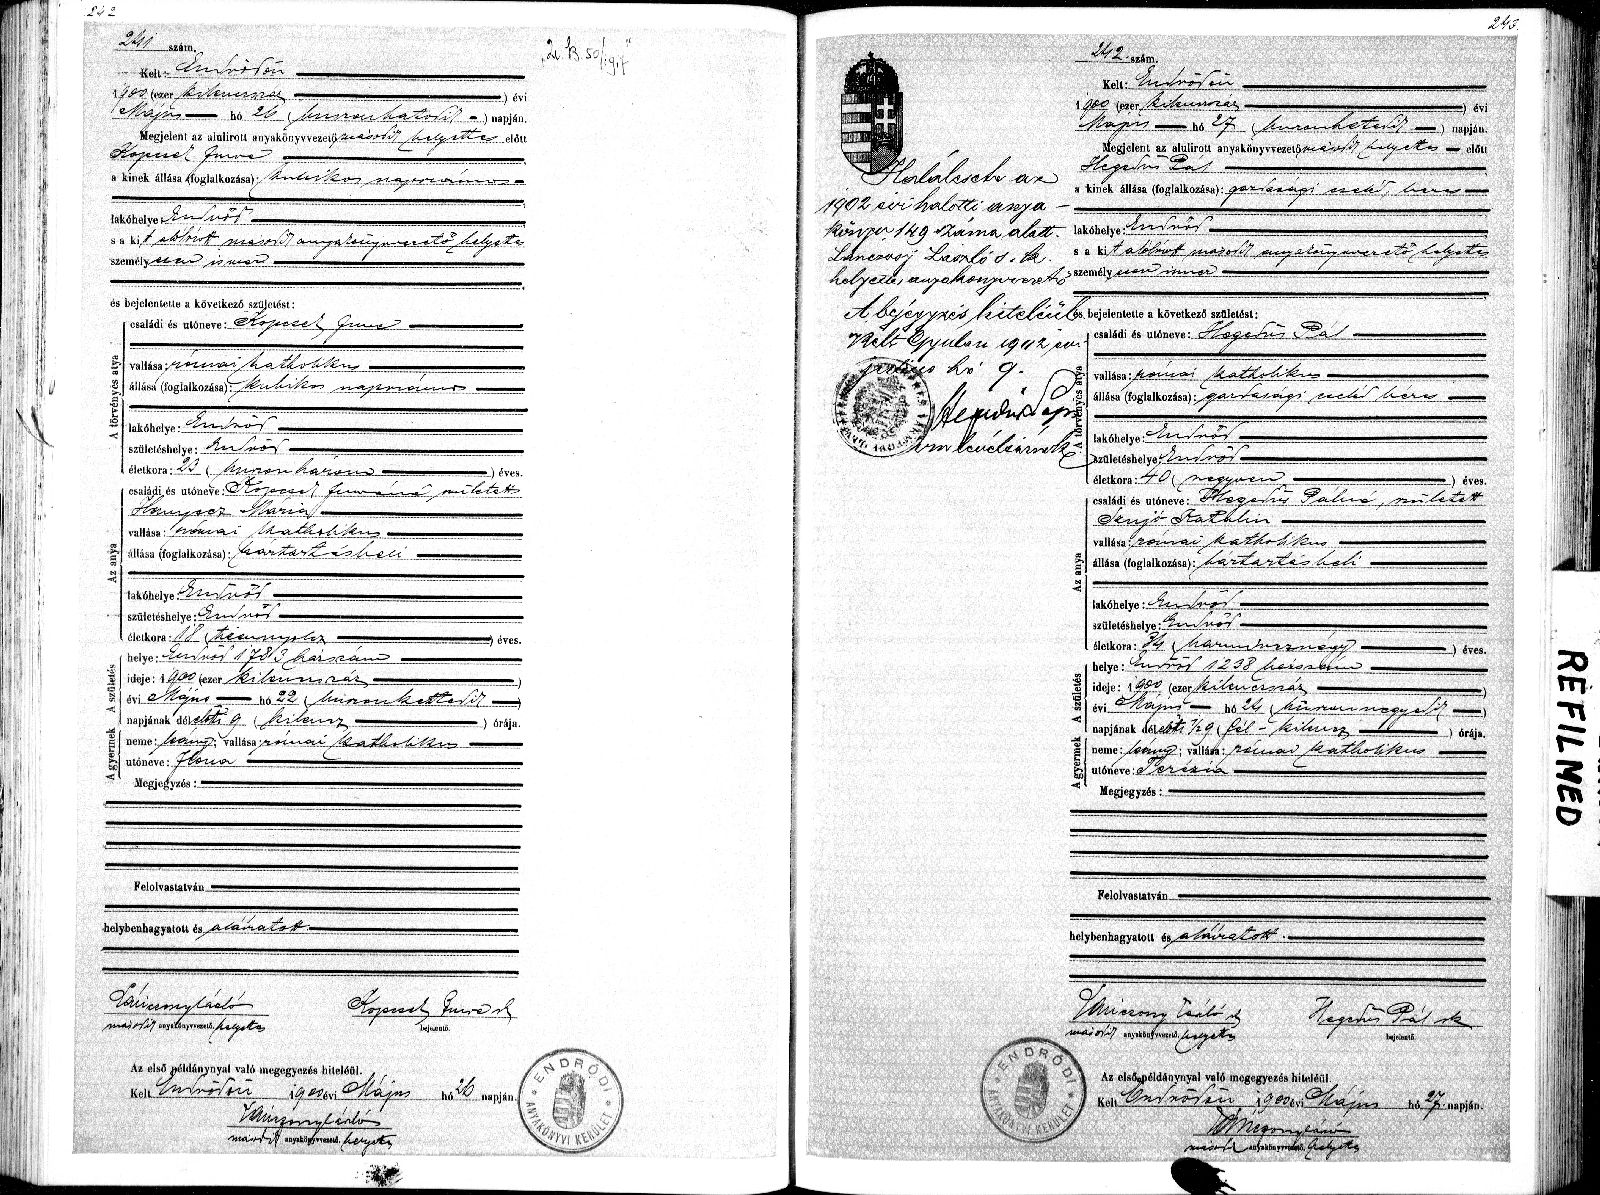 242
241 szám.
Kelt: Endrődön
1900 (ezer kilenczszáz) évi
Május hó 26 (huszonhatodik) napján.
Megjelent az alulirott anyakönyvvezető második helyettes előtt
a kinek állása (foglalkozása): kubikos napszámos
lakóhelye: Endrőd
s a kit alólirott második anyakönyvvezető helyettes
személyesen ismer
és bejelentette a következő születést:
A törvényes atya
családi és utóneve:
vallása: római katholikus
állása (foglalkozása): kubikos napszámos
lakóhelye: Endrőd
születéshelye: Endrőd
életkora: 23 (huszonhárom) éves.
Az anya
családi és utóneve: született
Mária
vallása: római katholikus
állása (foglalkozása): háztartásbeli
lakóhelye: Endrőd
születéshelye: Endrőd
életkora: 18 (tizennyolcz) éves.
A születés
helye: Endrőd 1783 házszám
ideje: 1900 (ezer kilenczszáz)
évi Május hó 22 (huszonkettedik)
napjának délelőtti 9 (kilencz) órája.
A gyermek
neme: leány; vallása: római katholikus
utóneve: Ilona
Megjegyzés:
Felolvastatván
helybenhagyatott és aláiratott.
második anyakönyvvezető helyettes
bejelentő.
Az első példánynyal való megegyezés hiteléül.
Kelt Endrődön 1900 évi Május hó 26 napján.
második anyakönyvvezető helyettes
ENDRŐDI ANYAKÖNYVI KERÜLET
243.
242 szám.
Kelt: Endrődön
1900 (ezer kilenczszáz) évi
Május hó 27 (huszonhetedik) napján.
Megjelent az alulirott anyakönyvvezető második helyettes előtt
Hegedűs Pál
a kinek állása (foglalkozása): gazdasági cseléd, béres
lakóhelye: Endrőd
s a kit alólirott második anyakönyvvezető helyettes
személyesen ismer
és bejelentette a következő születést:
A törvényes atya
családi és utóneve: Hegedűs Pál
vallása: római katholikus
állása (foglalkozása): gazdasági cseléd béres
lakóhelye: Endrőd
születéshelye: Endrőd
életkora: 40 (negyven) éves.
Az anya
családi és utóneve: Hegedűs Pálné, született
Katalin
vallása: római katholikus
állása (foglalkozása): háztartásbeli
lakóhelye: Endrőd
születéshelye: Endrőd
életkora: 34 (harmincznégy) éves.
A születés
helye: Endrőd 1238 házszám
ideje: 1900 (ezer kilenczszáz)
évi Május hó 24 (huszonnegyedik)
napjának délelőtti 1/2 9 (fél-kilencz) órája.
A gyermek
neme: leány; vallása: római katholikus
utóneve: Terézia
Megjegyzés:
Felolvastatván
helybenhagyatott és aláiratott.
második anyakönyvvezető helyettes
Hegedűs Pál sk
bejelentő.
Az első példánynyal való megegyezés hiteléül.
Kelt Endrődön 1900 évi Május hó 27 napján.
második anyakönyvvezető helyettes
ENDRŐDI ANYAKÖNYVI KERÜLET
Halálesete az
1902 évi halotti anya-
könyv 149 száma alatt.
László s. k.
helyettes anyakönyvvezető
A bejegyzés hiteléül
Kelt Gyulán 1902 évi
hó 9.
REFILMED